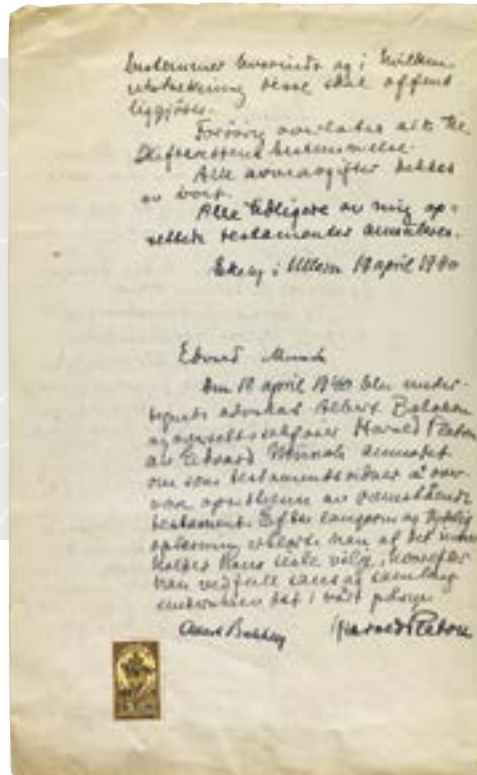 bestemmer hvorvidt og i hvilken
utstrekning disse skal offent
liggjöres.
Forövrig overlates alt til
Skifterettens bestemmelse.
Alle arveavgifter dekkes
av boet.
Alle tidligere av mig op-
settede testamenter annulleres.
Ekely i Ullern 18 april 1940
Edvard Munch
Den 18 april 1940 blev under-
tegnede advokat Albert
Harald Platou
av Edvard Munch anmodet
om som testamentsvidner å over-
være oprettelsen av ovenstående
testament. Efter langsom og tydelig
oplesning erklærte han at det inne
holder hans siste vilje, hvorefter
han ved full sans og samling
underskrev det i vårt påsyn
Harald Platou